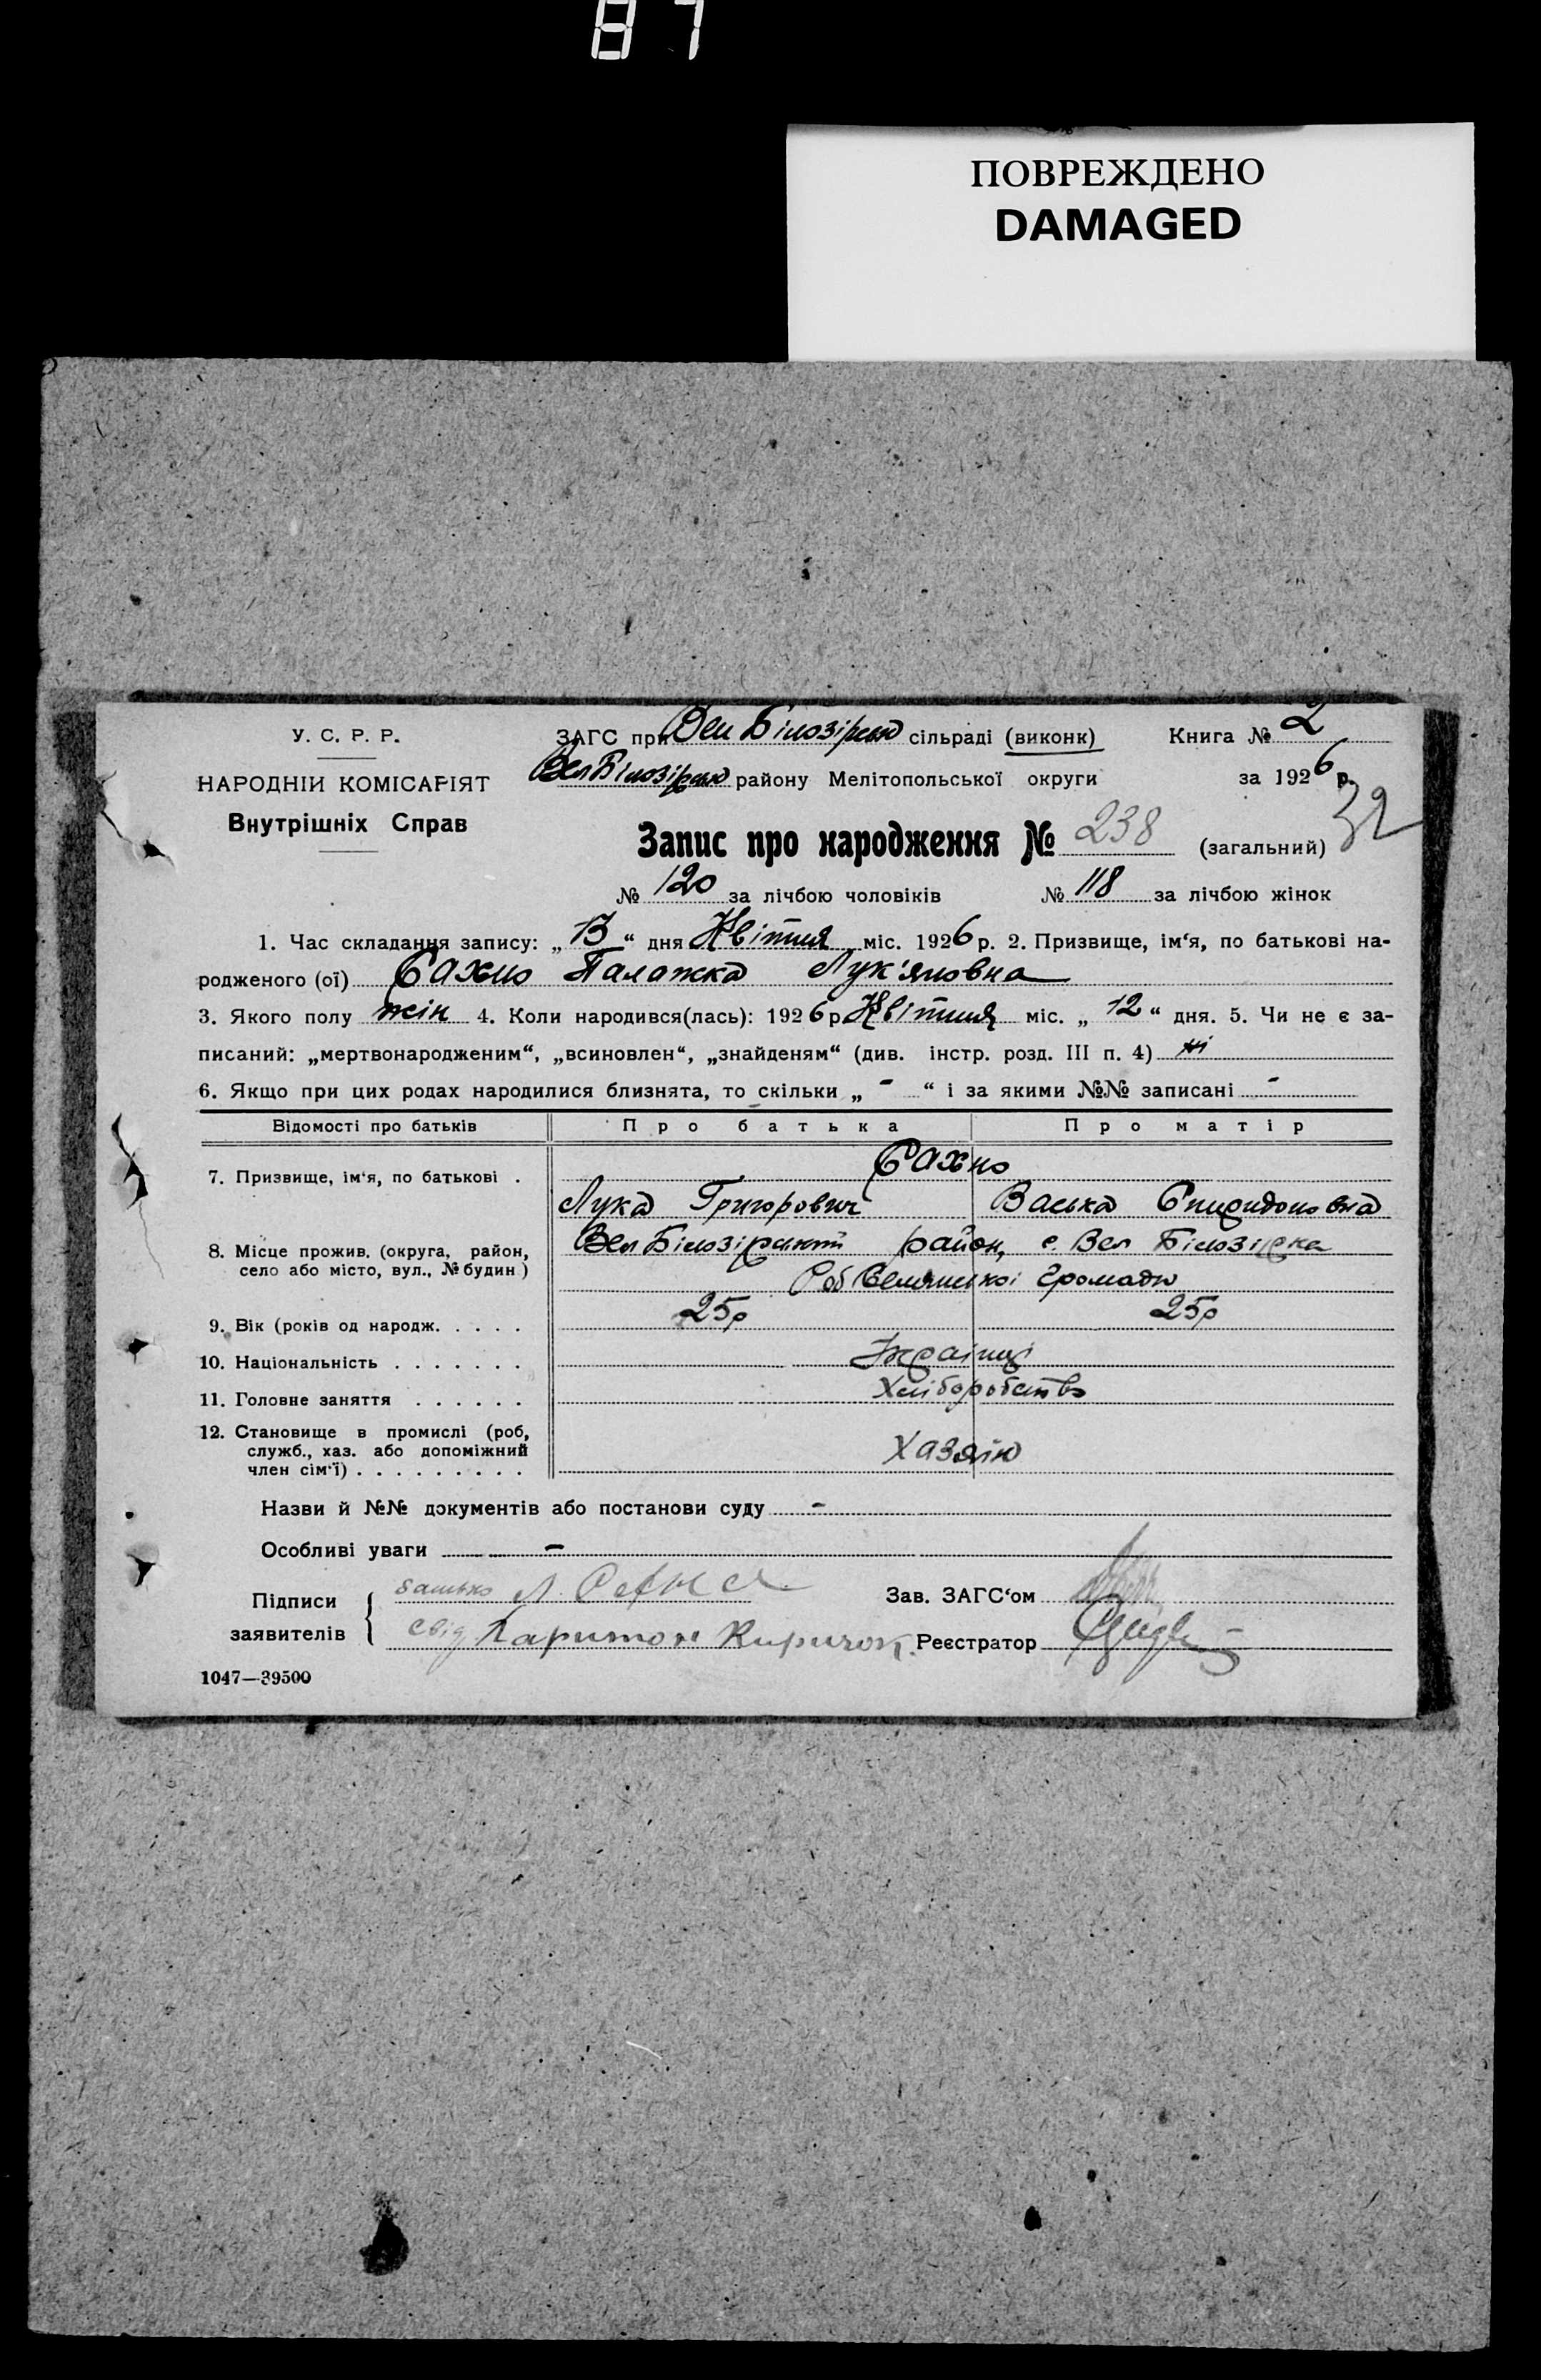 87
ПОВРЕЖДЕНО
DAMAGED
У. С. Р. Р.
НАРОДНІЙ КОМІСАРІЯТ
Внутрішніх Справ
ЗАГС при Вел Білозірськ сільраді (виконк) Книга № 2
Вел Білозірськ району Мелітопольської округи за 1926 р.
32
Запис про народження № 238 (загальний)
№ 120 за лічбою чоловіків № 118 за лічбою жінок
1. Час складання запису: „13“ дня Квітня міс. 1926 р. 2. Призвище, ім‘я, по батькові на-
родженого (ої) Сахно Палажка Лук'яновна
3. Якого полу жін 4. Коли народився(лась): 1926 р Квітня міс. „12“ дня. 5. Чи не є за-
писаний: „мертвонародженим“, „всиновлен“, „знайденям“ (див. інстр. розд. III п. 4) ні
6. Якщо при цих родах народилися близнята, то скільки „ - “ і за якими №№ записані -
Відомості про батьків Про батька Про матір
7. Призвище, ім‘я, по батькові . Сахно
Лука Григорович Васька Спиридоновна
8. Місце прожив. (округа, район, село або місто, вул., № будин) Вел Білозірський район, с. Вел Білозірка
Громади
9. Вік (років од народж. . . . . 25р 25р
10. Національність . . . . . . . Українці
11. Головне заняття . . . . . . Хліборобство
12. Становище в промислі (роб,
служб., хаз. або допоміжний
член сім‘ї) . . . . . . . . . Хазяїн
Назви й №№ документів або постанови суду -
Особливі уваги -
Підписи заявителів { батько Л. Сахно Зав. ЗАГС‘ом
свід Харитон Киричок. Реєстратор
1047—39500